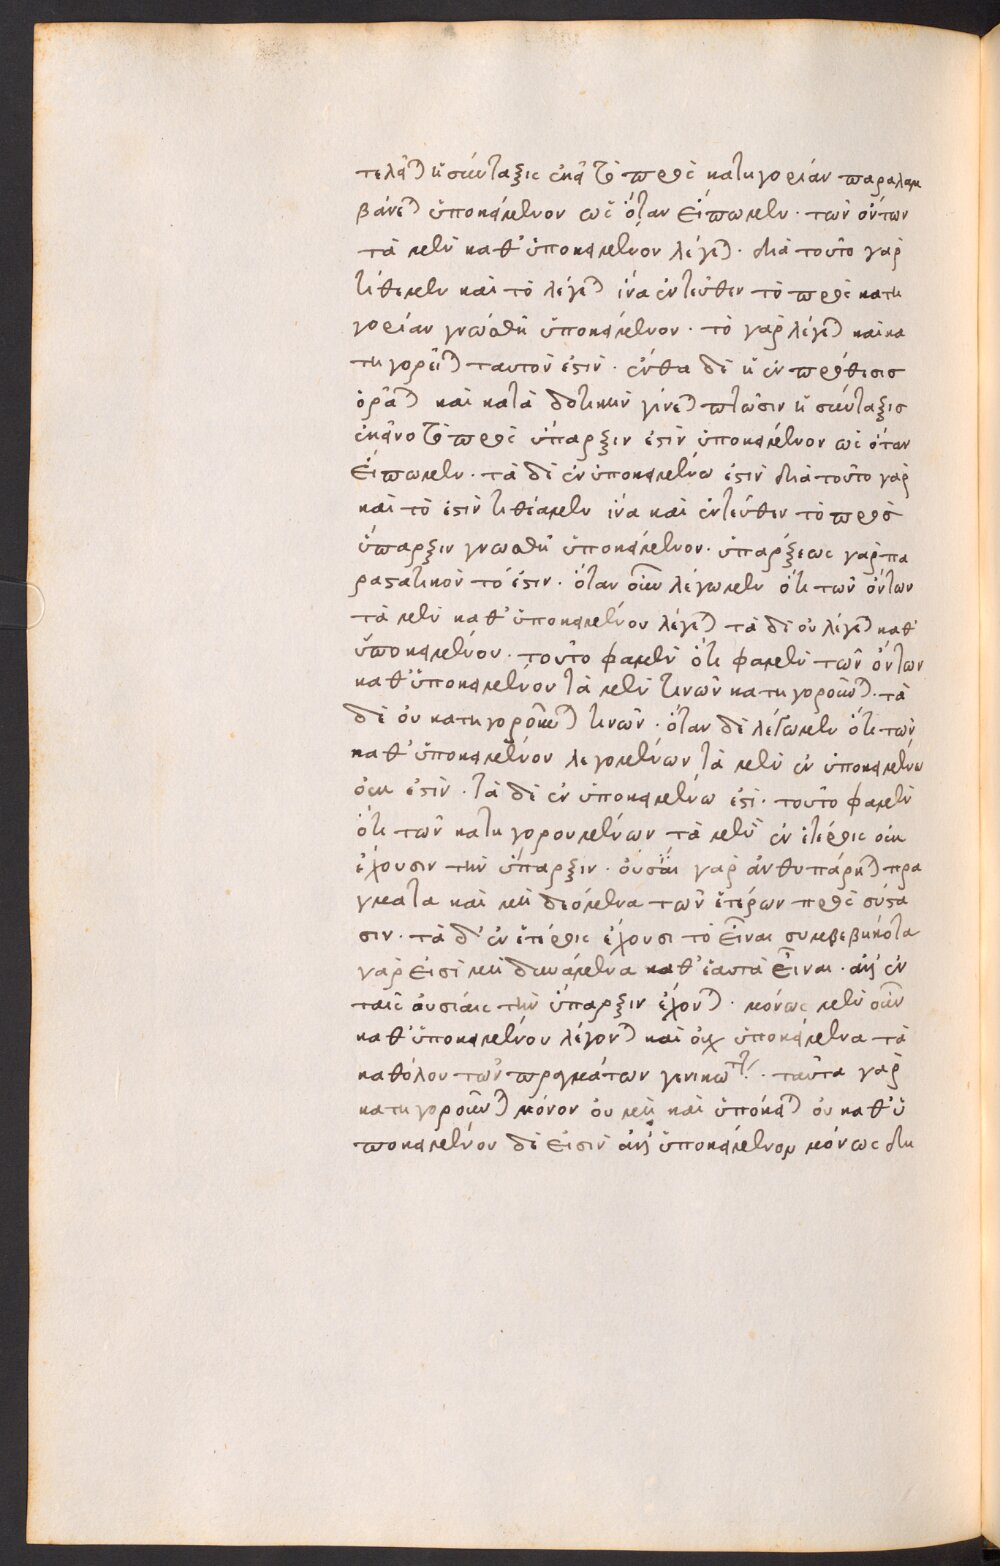 τελεῖται ἡ σύνταξις ἐκεῖ τὸ πρὸς κατηγορίαν παραλαμ
βάνεται ὑποκείμενον ὡς ὅταν εἴπωμεν · τῶν ὄντων
τὰ μὲν καθ' ὑποκειμένου λέγεται · διὰ τοῦτο γὰρ
τίθεμεν καὶ τὸ λέγεται ἵνα ἐντεῦθεν τὸ πρὸς κατη
γορίαν γνωσθῇ ὑποκείμενον · τὸ γὰρ λέγεται καὶ κα
τηγορεῖται ταυτόν ἐστιν · ἔνθα δὲ ἡ ἐν πρόθεσις
ὁρᾶται καὶ κατὰ δοτικὴν γίνεται πτῶσιν ἡ σύνταξις
ἐκεῖνο τὸ πρὸς ὕπαρξιν ἐστὶν ὑποκείμενον ὡς ὅταν
εἴπωμεν · τὰ δὲ ἐν ὑποκειμένω ἐστὶν διὰ τοῦτο γὰρ
καὶ τὸ ἐστὶν τιθέαμεν ἵνα καὶ ἐντεῦθεν τὸ πρὸς
ὕπαρξιν γνωσθῇ ὑποκείμενον · ὑπάρξεως γὰρ πα
ραστατικὸν τὸ ἔστιν · ὅταν οὖν λέγωμεν ὅτι τῶν ὄντων
τὰ μὲν καθ' ὑποκειμένου λέγεται τὰ δὲ οὐ λέγεται καθ'
ὑποκειμένου · τοῦτο φαμὲν ὅτι φαμὲν τῶν ὄντων
καθ' ὑποκειμένου τὰ μὲν τινῶν κατηγοροῦνται · τὰ
δὲ οὐ κατηγοροῦνται τινῶν · ὅταν δὲ λέγωμεν ὅτι τῶν
καθ' ὑποκειμένου λεγομένων τὰ μὲν ἐν ὑποκειμένω
οὐκ ἐστὶν · τὰ δὲ ἐν ὑποκειμένω ἐστι · τοῦτο φαμὲν
ὅτι τῶν κατηγορουμένων τὰ μὲν ἐν ἑτέροις οὐκ
ἔχουσιν τὴν ὕπαρξιν · οὐσίαι γὰρ ἀνθυπάρκται πρα
γματα καὶ μὴ δεόμενα τῶν ἑτέρων πρὸς σύστα
σιν · τὰ δ' ἐν ἑτέροις ἔχουσι τὸ εἶναι συμβεβηκότα
γὰρ εἰσὶ μὴ δυνάμενα καθ' ἑαυτὰ εἶναι · ἀλλ' ἐν
ταῖς οὐσίαις τὴν ὕπαρξιν ἔχονται · μόνως μὲν οὖν
καθ' ὑποκειμένου λέγονται καὶ οὐχ ὑποκείμενα τὰ
καθόλου τῶν πραγμάτων γενικωτ · ταῦτα γὰρ
κατηγοροῦνται μόνον οὐ μὴ καὶ ὑπόκειται οὐ καθ' ὑ
ποκειμένου δὲ εἰσὶν ἀλλ' ὑποκείμενον μόνως δη